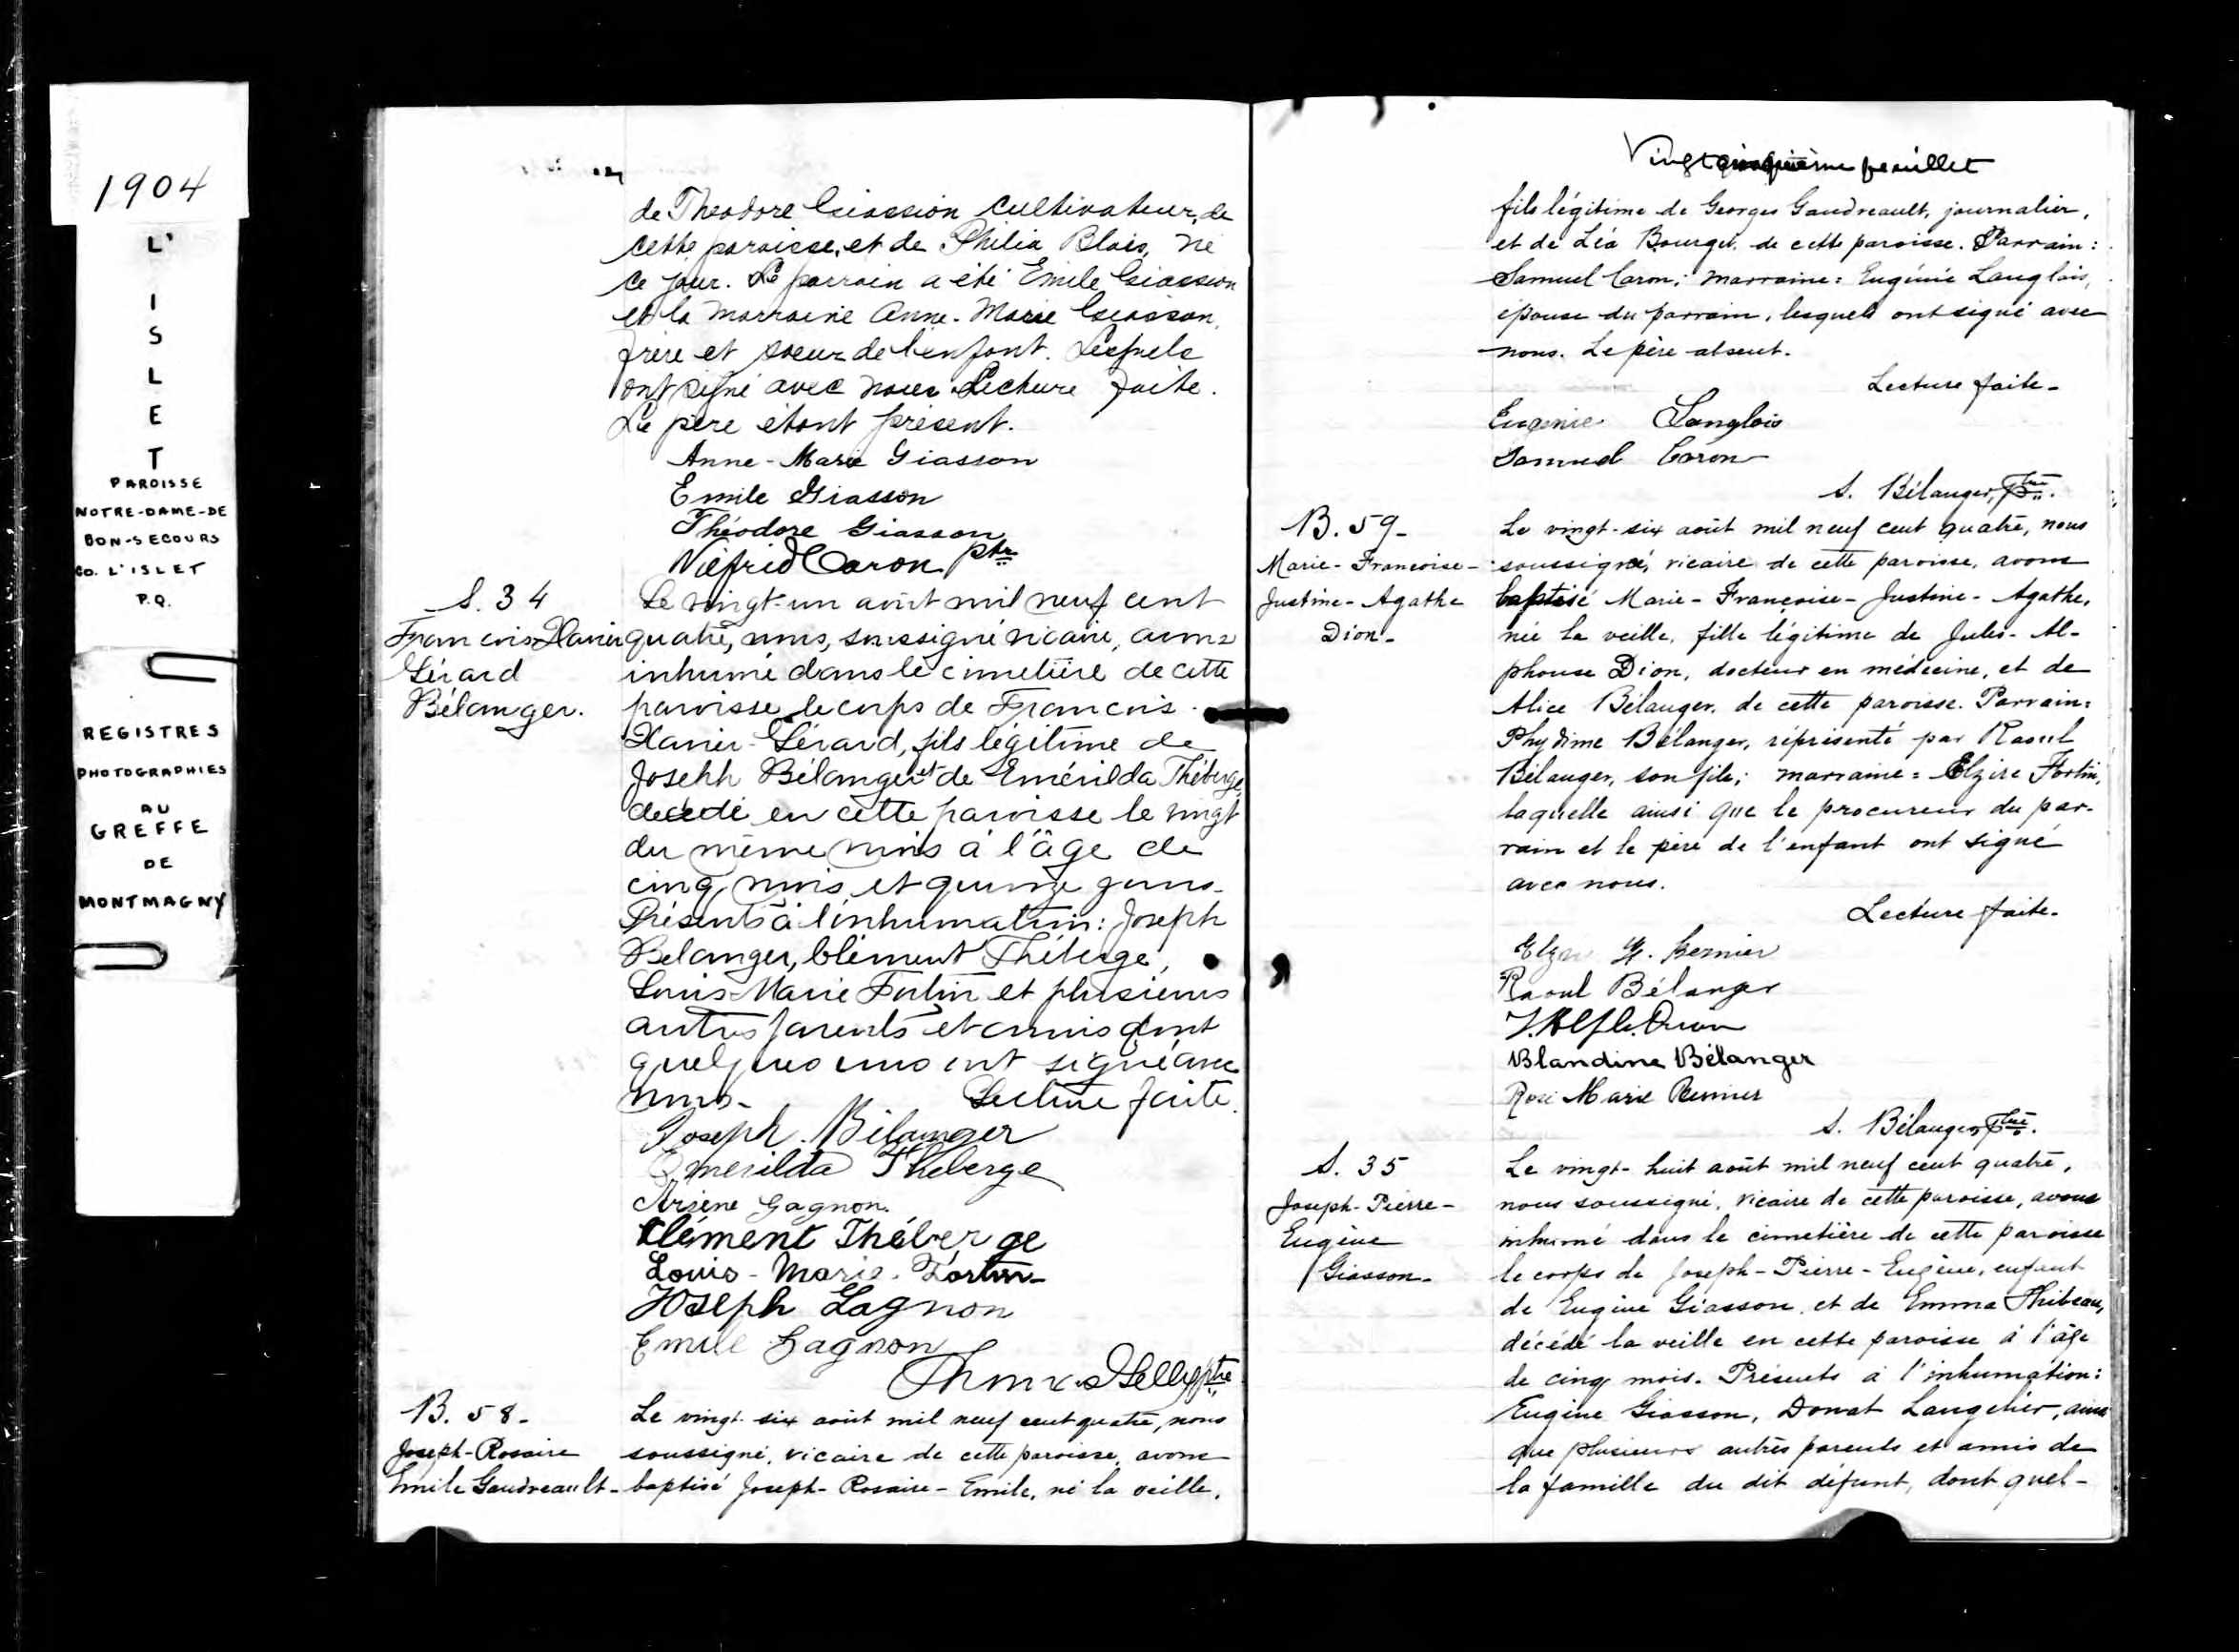 1904
L'
I
S
L
E
T
PAROISSE
NOTRE-DAME-DE
BON-SECOURS
CO. L'ISLET
P.Q.
REGISTRES
PHOTOGRAPHIES
AU
GREFFE
DE
MONTMAGNY
de Theodore Giassion cultivateur, de
cette paroisse, et de Philia Blais, né
ce jour. Le parrain a été Emile Giassion
et la marraine Anne-Marie Giasson,
frère et soeur de l'enfant. Lesquels
ont signé avec nous. Lecture faite.
Le père étant présent.
Anne-Marie Giasson
Emile Giasson
Théodore Giasson
Wilfrid Caron ptre
S. 34
François Xavier
Gérard
Bélanger.
Le vingt-un août mil neuf cent
quatre, nous, soussigné vicaire, avons
inhumé dans le cimetière de cette
paroisse le corps de François-
Xavier-Gérard, fils légitime de
Joseph Bélanger et de Emérilda Théberge,
décédé en cette paroisse le vingt
du même mois à l'âge de
cinq mois et quinze jours.
Présents à l'inhumation: Joseph
Belanger, Clément Théberge,
Louis-Marie Fortin et plusieurs
autres parents et amis dont
quelques uns ont signé avec
nous. Lecture faite.
Joseph Bélanger
Emerilda Theberge
Arsène Gagnon.
Clément Théberge
Louis-Marie Fortin
Joseph Gagnon
Emile Gagnon
ptre
B. 58-
Joseph-Rosaire
Emile Gaudreault-
Le vingt-six août mil neuf cent quatre, nous
soussigné, vicaire de cette paroisse, avons
baptisé Joseph-Rosaire-Emile, né la veille,
Vingt feuillet
fils légitime de Georges Gaudreault, journalier,
et de Léa Bourget, de cette paroisse. Parrain:
Samuel Caron; marraine: Eugénie Langlois,
épouse du parrain, lesquels ont signé avec
nous. Le père absent.
Lecture faite-
Eugenie Langlois
Samuel Caron
S. Bélanger, Ptre.
B. 59-
Marie-Francoise-
Justine-Agathe
Dion-
Le vingt-six août mil neuf cent quatre, nous
soussigné, vicaire de cette paroisse, avons
baptisé Marie-Françoise-Justine-Agathe,
née la veille, fille légitime de Jules-Al-
phonse Dion, docteur en médecine, et de
Alice Bélanger, de cette paroisse. Parrain:
Phydime Bélanger, réprésenté par Raoul
Bélanger, son fils; marraine: Elzire Fortin,
laquelle ainsi que le procureur du par-
rain et le père de l'enfant ont signé
avec nous.
Lecture faite-
Bernier
Raoul Bélanger
Blandine Bélanger
Rose Marie Bernier
S. Bélanger, Ptre.
S. 35
Joseph-Pierre-
Eugène
Giasson-
Le vingt-huit août mil neuf cent quatre,
nous soussigné, vicaire de cette paroisse, avons
inhumé dans le cimetière de cette paroisse
le corps de Joseph-Pierre-Eugène, enfant
de Eugène Giasson, et de Emma Thibeau,
décédé la veille en cette paroisse à l'âge
de cinq mois. Présents à l'inhumation:
Eugène Giasson, Donat Langelier, ainsi
que plusieurs autres parents et amis de
la famille du dit défunt, dont quel-